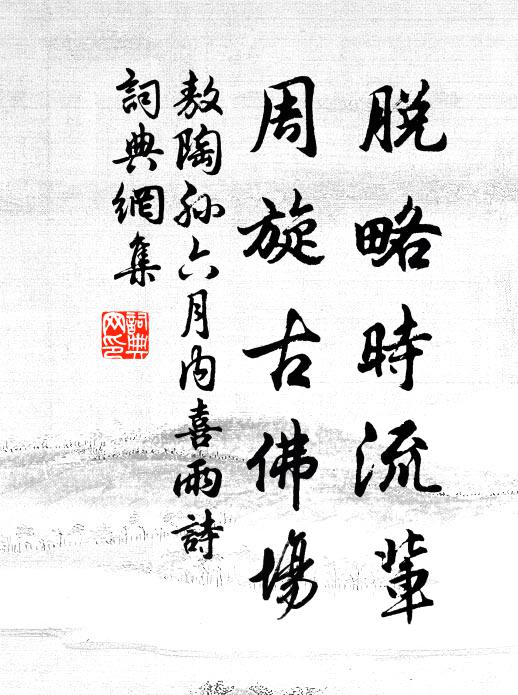 脫略時流輩
周旋古佛場
敖陶孫六月內喜雨詩
詞典網集
詞典網印